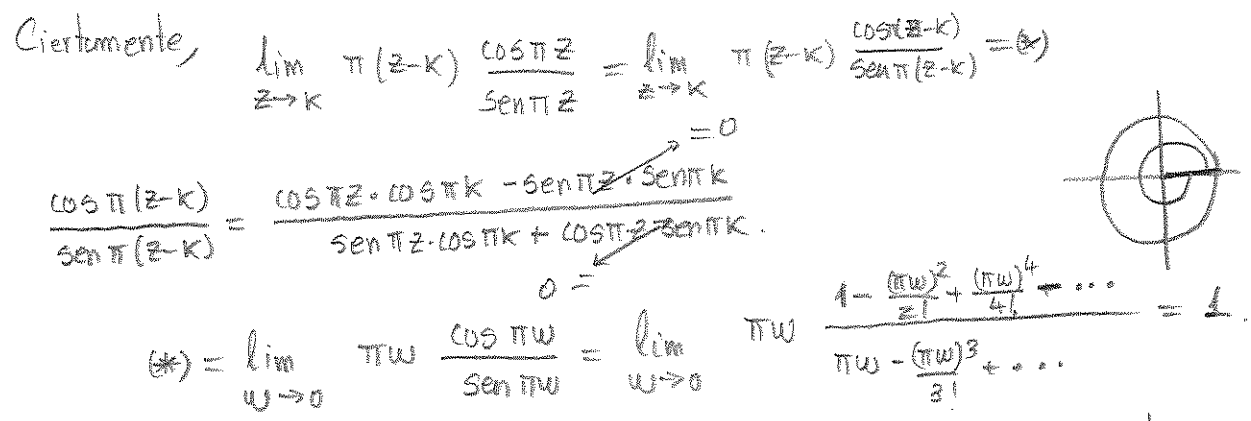 Ciertamente, lim z→k π(z-k) cos πz / sen πz = lim z→k π(z-k) cos(z-k) / sen π(z-k) = (*)
= 0
cos π(z-k) / sen π(z-k) = cos πz · cos πk - sen πz · sen πk / sen πz · cos πk + cos π·z sen πk.
0 =
(*) = lim w→0 πw cos πw / sen πw = lim w→0 πw 1 - (πw)²/2! + (πw)⁴/4! - ··· / πw - (πw)³/3! + ··· = 1.